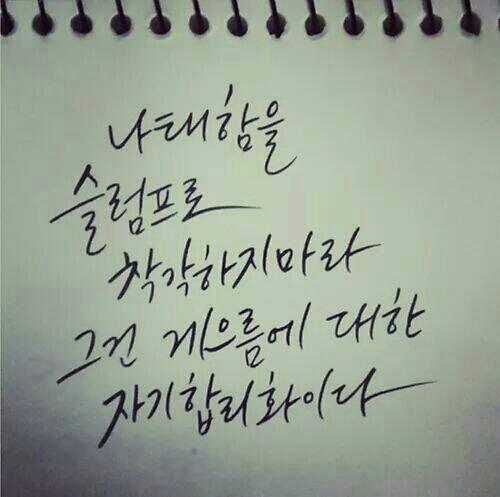 나태함을
슬럼프로
착각하지마라
그건 게으름에 대한
자기합리화이다